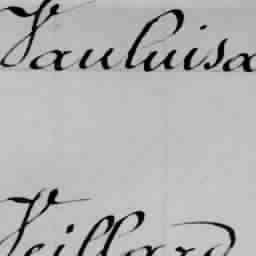 Vauluisa
Veillard